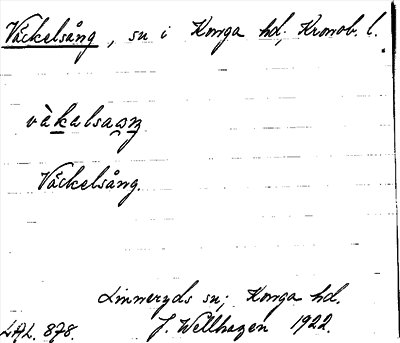 Väckelsång, sn i Konga hd, Kronob. l.
vàkalsaŋ
Väckelsång.
Linneryds sn; Konga hd.
LAL. 878. J. Wellhagen 1922.